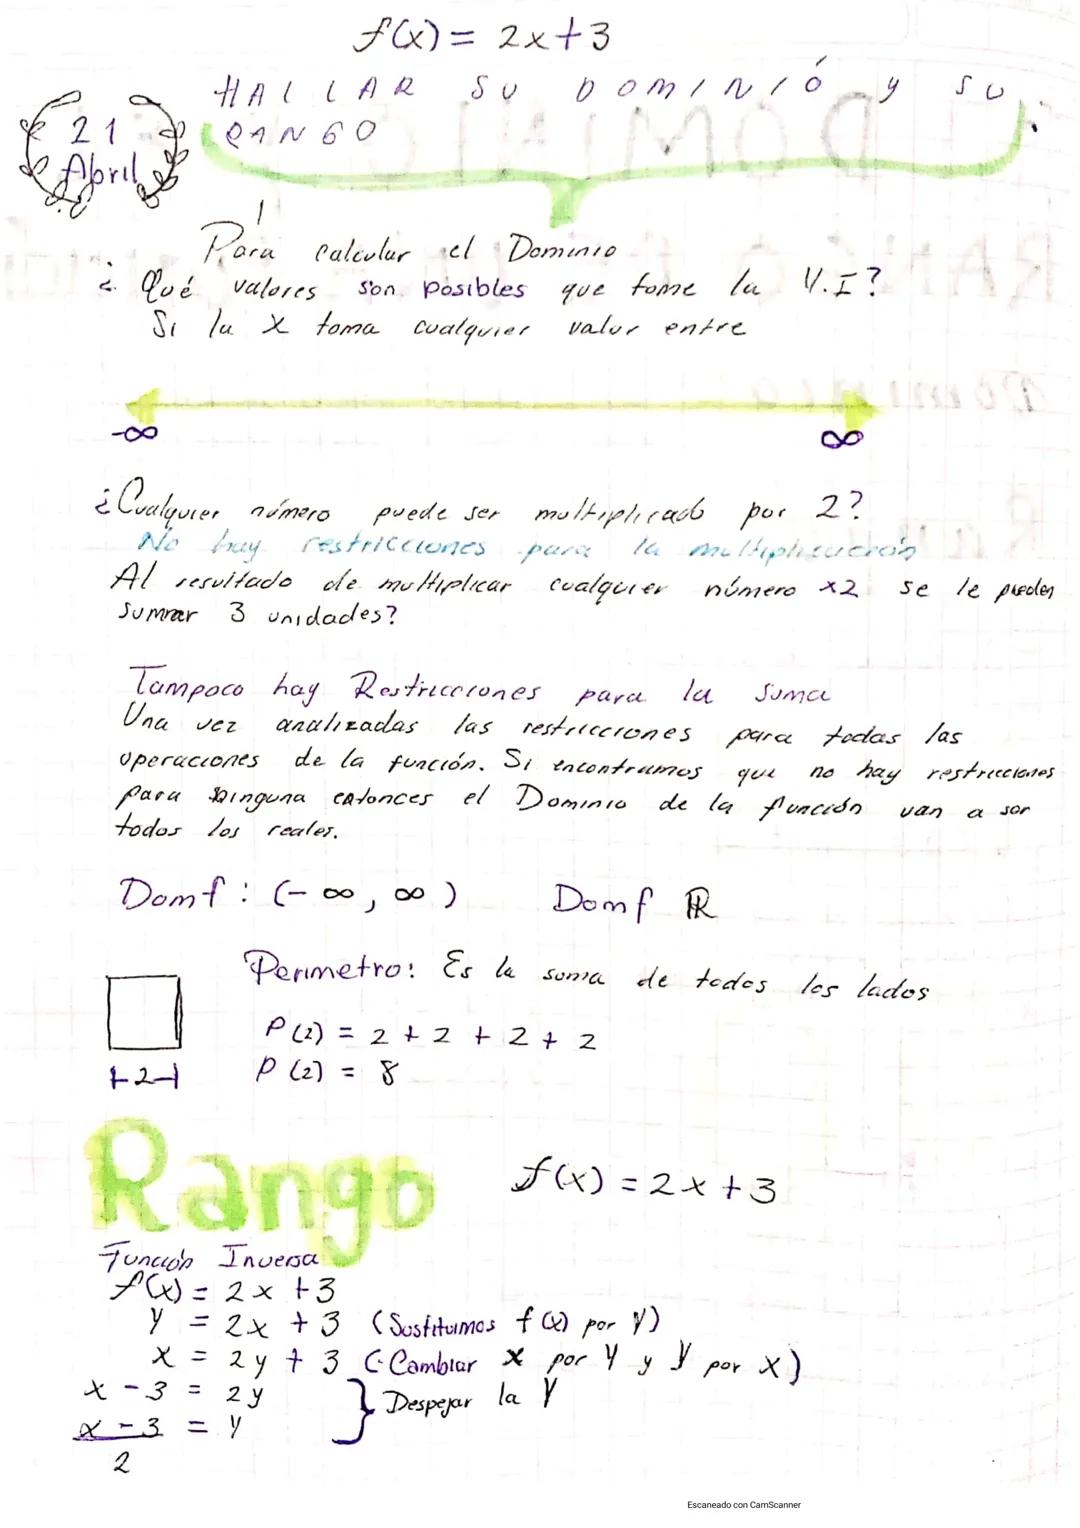 f(x) = 2x+3
HALLAR SU DOMINIÓ y SU
RANGO
21
Abril
Para calcular el Dominio
¿ Qué valores son posibles que tome la V.I?
Si la X toma cualquier valor entre
-∞ ∞
¿Cualquier número puede ser multiplicado por 2?
No hay restricciones para la multiplicación
Al resultado de multiplicar cualquier número x2 se le pueden
sumar 3 unidades?
Tampoco hay Restricciones para la suma
Una vez analizadas las restricciones para todas las
operaciones de la función. Si encontramos que no hay restricciones
para ninguna entonces el Dominio de la función van a ser
todos los reales.
Domf : (-∞, ∞) Domf ℝ
Perímetro: Es la suma de todos los lados
P(2) = 2 + 2 + 2 + 2
P(2) = 8
2
Rango f(x) = 2x+3
Función Inversa
f(x) = 2x +3
y = 2x + 3 (Sustituimos f(x) por y)
x = 2y + 3 (Cambiar x por y y y por x)
x - 3 = 2y
x - 3 = y } Despejar la y
2
Escaneado con CamScanner